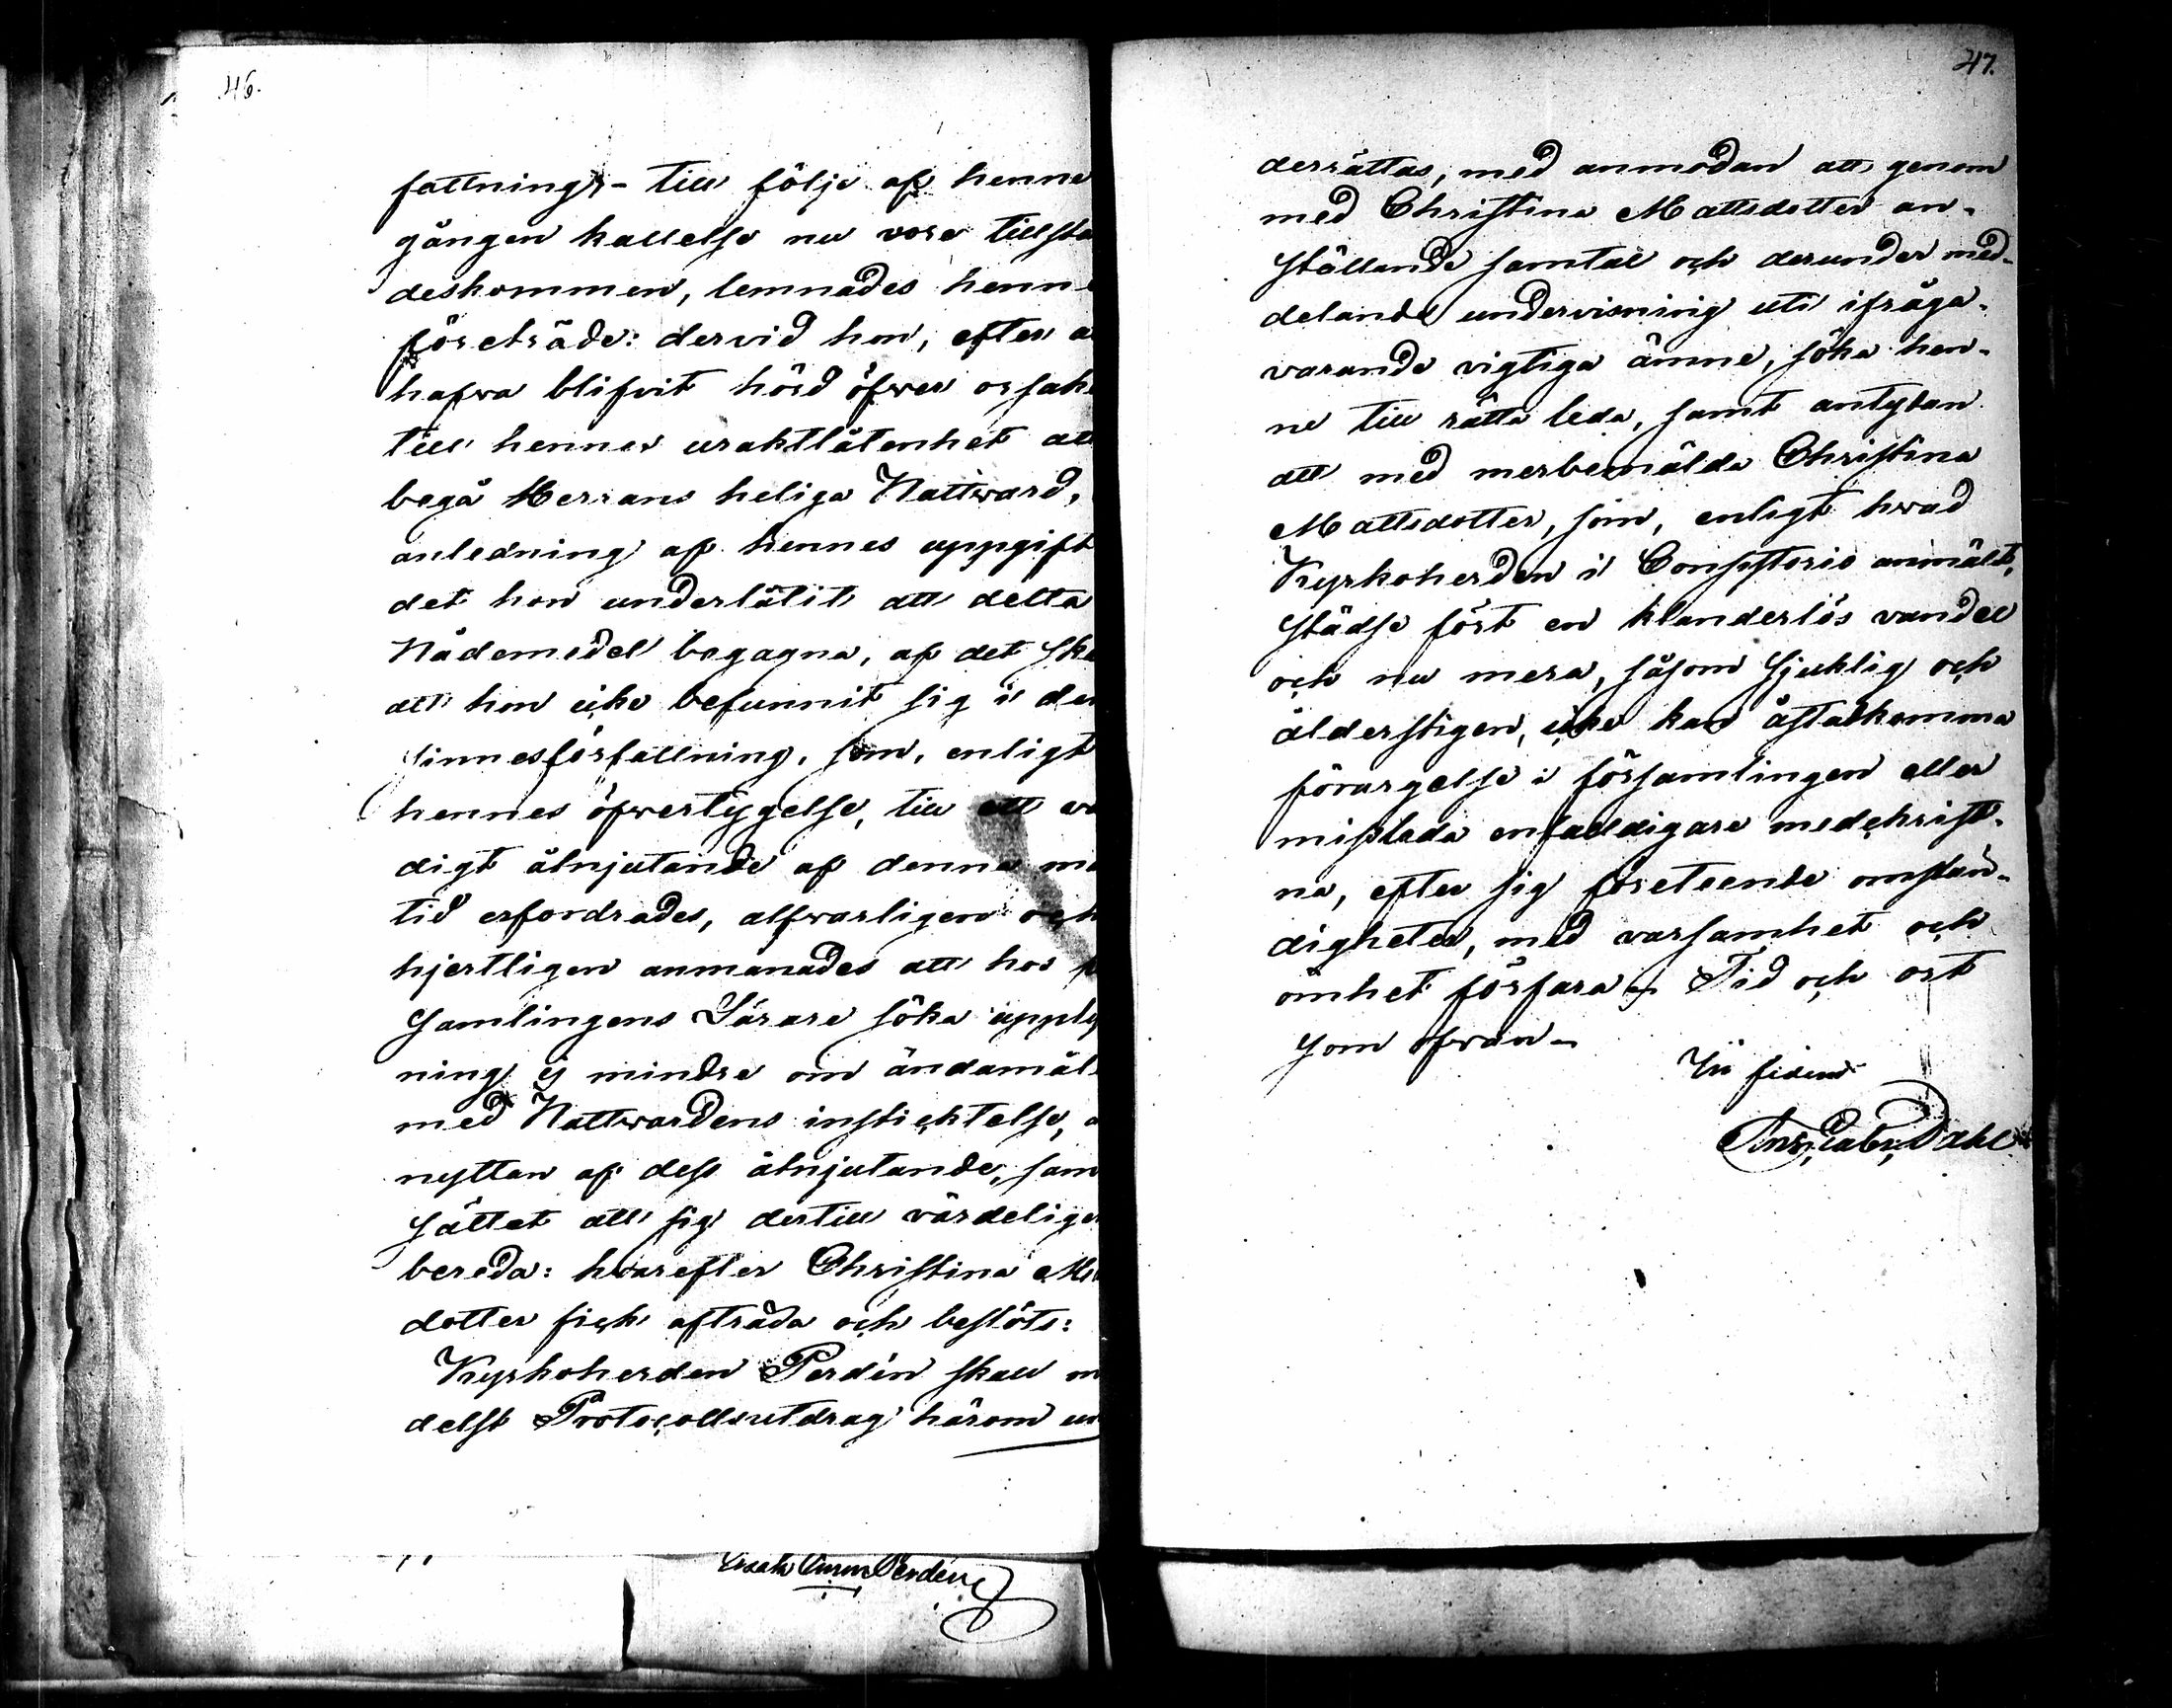 46.
fattnings- till följe af henne
gången kallelse nu vore tillsta
deskommen, lemnades henne
företräde: dervid hon, efter a
hafva blifvit hörd öfwer orsak
till hennes uraktlåtenhet att
begå Herrans heliga Nattward,
anledning af hennes uppgift
det hon underlåtit att detta
Nådemedel begagna, af det ska
att hon icke befunnit sig i den
sinnesförfattning, som, enligt
hennes öfwertygelse, till ett vä
digt åtnjutande af denna må
tid erfordrades, alfwarligen och
hjertligen anmanades att hos f
samlingens Lärare söka upply
ning ej mindre om ändamåle
med Nattwardens instichtelse, o
nyttan af dess åtnjutande, sam
sättet att sig dertill värdeligen
bereda: hvarefter Christina Ma
dotter fick afträda och beslöts:
Kyrkoherden Perdén skall m
delst Protocollsutdrag härom un
Isak Perdén
47.
derrättas, med anmodan att genom
med Christina Mattsdotter an-
ställande samtal och derunder med-
delande undervisning uti ifråga-
varande vigtiga ämne, söka hen-
ne till rätta leda, samt antydan
att med merbemälda Christina
Mattsdotter, som, enligt hwad
Kyrkoherden i Consistorio anmält,
städse fört en klanderlös vandel
och nu mera, såsom sjuklig och
ålderstigen, icke kan åstadkomma
förargelse i församlingen eller
missleda enfaldigare medchrist-
na, efter sig företeende omstän-
digheter, med varsamhet och
ömhet förfara. Tid och ort
som ofwan.
In fidem
And. Gabr. Dahl.